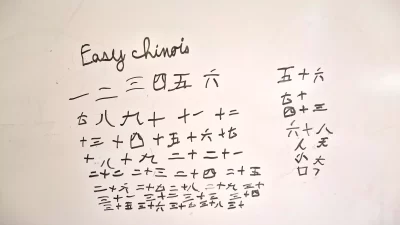 Easy chinois
一 二 三 四 五 六
七 八 九 十 十一 十二
十三 十四 十五 十六 十七
十八 十九 二十 二十一
二十二 二十三 二十四 二十五
二十六 二十七 二十八 二十九 三十
三十一 三十二 三十三 三十四
三十五 三十六 三十七 三十八 五十
五十六
七十
四十三
六十八
人 天
小 大
口